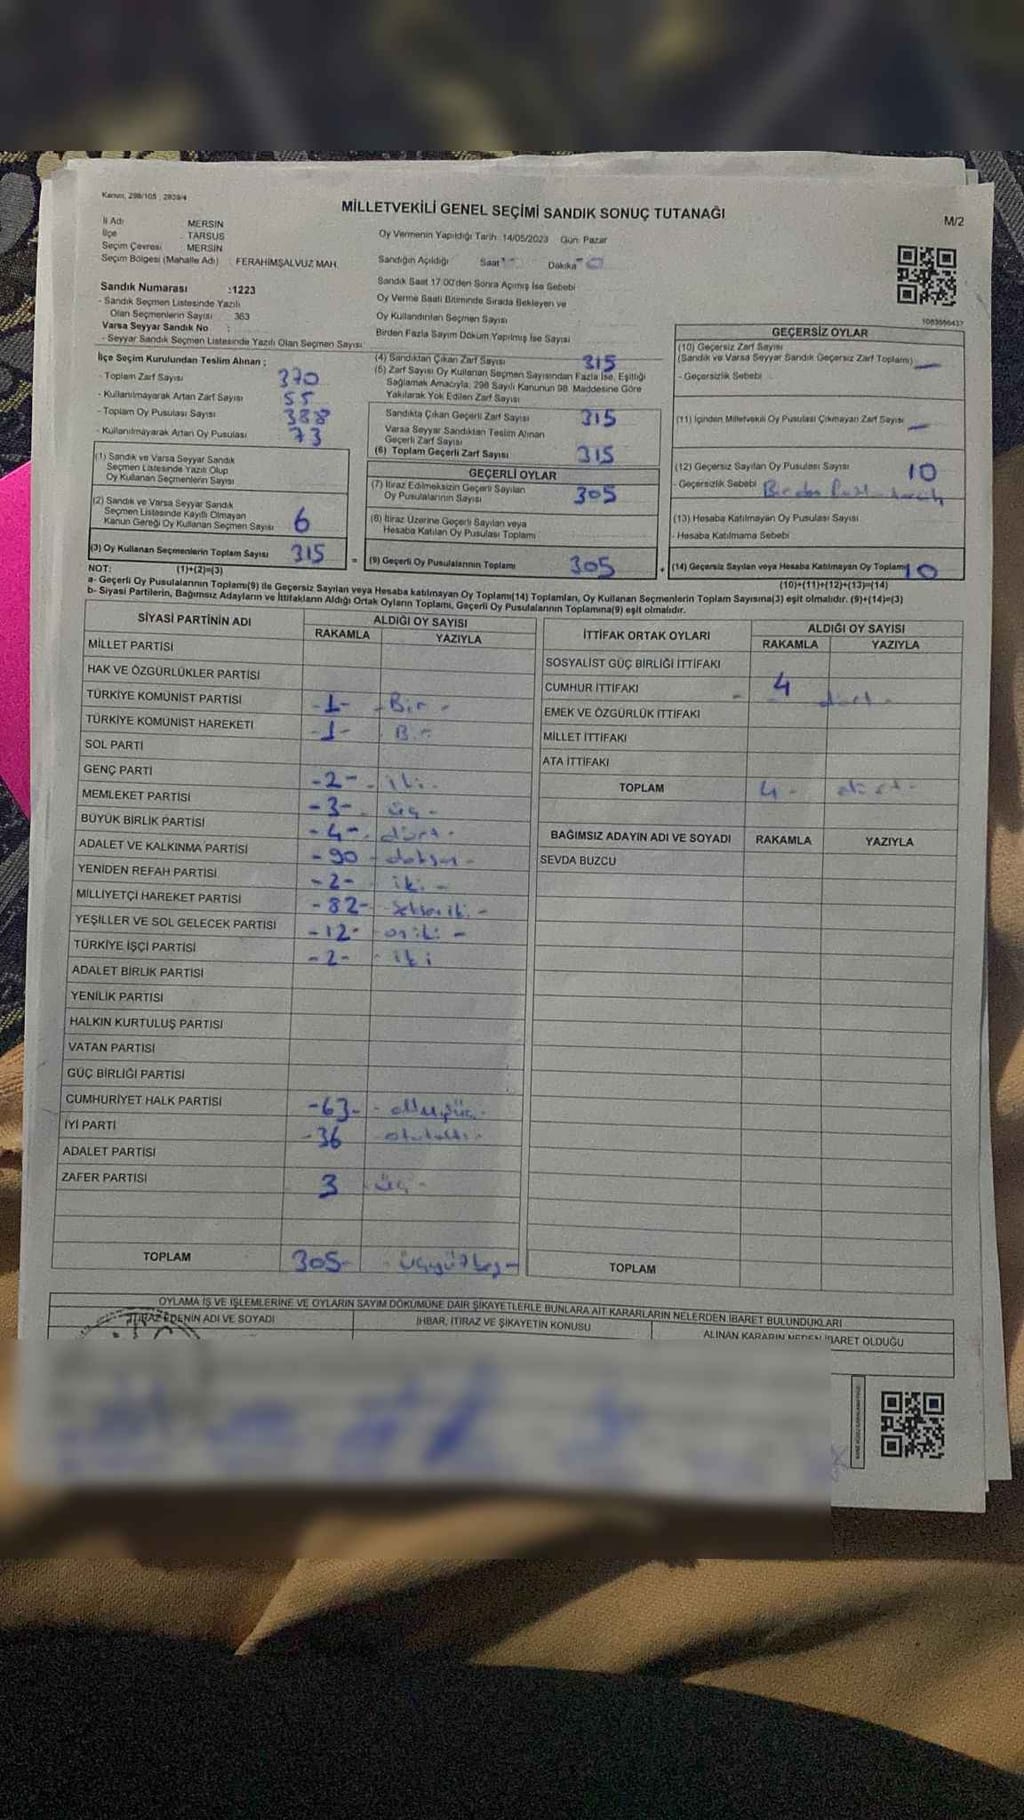 Kanun, 298/105 ; 2839/4
MİLLETVEKİLİ GENEL SEÇİMİ SANDIK SONUÇ TUTANAĞI
M/2
İl Adı MERSİN
İlçe TARSUS
Seçim Çevresi MERSİN
Seçim Bölgesi (Mahalle Adı) : FERAHİMŞALVUZ MAH.
Oy Vermenin Yapıldığı Tarih :14/05/2023 Gün: Pazar
Sandığın Açıldığı Saat Dakika
Sandık Numarası :1223
- Sandık Seçmen Listesinde Yazılı
Olan Seçmenlerin Sayısı 363
Varsa Seyyar Sandık No :
- Seyyar Sandık Seçmen Listesinde Yazılı Olan Seçmen Sayısı
Sandık Saat 17:00'den Sonra Açımış İse Sebebi
Oy Verme Saati Bitiminde Sırada Bekleyen ve
Oy Kullandırılan Seçmen Sayısı
Birden Fazla Sayım Döküm Yapılmış İse Sayısı
İlçe Seçim Kurulundan Teslim Alınan ;
- Toplam Zarf Sayısı 370
- Kullanılmayarak Artan Zarf Sayısı 55
- Toplam Oy Pusulası Sayısı 388
- Kullanılmayarak Artan Oy Pusulası 73
(1) Sandık ve Varsa Seyyar Sandık
Seçmen Listesinde Yazılı Olup
Oy Kullanan Seçmenlerin Sayısı
(2) Sandık ve Varsa Seyyar Sandık
Seçmen Listesinde Kayıtlı Olmayan
Kanun Gereği Oy Kullanan Seçmen Sayısı 6
(3) Oy Kullanan Seçmenlerin Toplam Sayısı 315 =
(4) Sandıktan Çıkan Zarf Sayısı 315
(5) Zarf Sayısı Oy Kullanan Seçmen Sayısından Fazla İse, Eşitliği
Sağlamak Amacıyla, 298 Sayılı Kanunun 98. Maddesine Göre
Yakılarak Yok Edilen Zarf Sayısı
Sandıkta Çıkan Geçerli Zarf Sayısı 315
Varsa Seyyar Sandıktan Teslim Alınan
Geçerli Zarf Sayısı
(6) Toplam Geçerli Zarf Sayısı 315
GEÇERLİ OYLAR
(7) İtiraz Edilmeksizin Geçerli Sayılan
Oy Pusulalarının Sayısı 305
(8) İtiraz Üzerine Geçerli Sayılan veya
Hesaba Katılan Oy Pusulası Toplamı
(9) Geçerli Oy Pusulalarının Toplamı 305 +
1083556437
GEÇERSİZ OYLAR
(10) Geçersiz Zarf Sayısı
(Sandık ve Varsa Seyyar Sandık Geçersiz Zarf Toplamı) —
- Geçersizlik Sebebi
(11) İçinden Milletvekili Oy Pusulası Çıkmayan Zarf Sayısı —
(12) Geçersiz Sayılan Oy Pusulası Sayısı 10
- Geçersizlik Sebebi Birden Fazla
(13) Hesaba Katılmayan Oy Pusulası Sayısı
- Hesaba Katılmama Sebebi
(14) Geçersiz Sayılan veya Hesaba Katılmayan Oy Toplamı 10
NOT: (1)+(2)=(3)
(10)+(11)+(12)+(13)=(14)
a- Geçerli Oy Pusulalarının Toplamı(9) ile Geçersiz Sayılan veya Hesaba katılmayan Oy Toplamı(14) Toplamları, Oy Kullanan Seçmenlerin Toplam Sayısına(3) eşit olmalıdır. (9)+(14)=(3)
b- Siyasi Partilerin, Bağımsız Adayların ve İttifakların Aldığı Ortak Oyların Toplamı, Geçerli Oy Pusulalarının Toplamına(9) eşit olmalıdır.
SİYASİ PARTİNİN ADI ALDIĞI OY SAYISI
RAKAMLA YAZIYLA
MİLLET PARTİSİ
HAK VE ÖZGÜRLÜKLER PARTİSİ
TÜRKİYE KOMÜNİST PARTİSİ -1- Bir -
TÜRKİYE KOMÜNİST HAREKETİ -1- Bir
SOL PARTİ
GENÇ PARTİ -2- iki -
MEMLEKET PARTİSİ -3- üç -
BÜYÜK BİRLİK PARTİSİ -4- dört -
ADALET VE KALKINMA PARTİSİ - 90 - doksan -
YENİDEN REFAH PARTİSİ -2- iki -
MİLLİYETÇİ HAREKET PARTİSİ -82- seksen iki -
YEŞİLLER VE SOL GELECEK PARTİSİ -12- oniki -
TÜRKİYE İŞÇİ PARTİSİ -2- iki
ADALET BİRLİK PARTİSİ
YENİLİK PARTİSİ
HALKIN KURTULUŞ PARTİSİ
VATAN PARTİSİ
GÜÇ BİRLİĞİ PARTİSİ
CUMHURİYET HALK PARTİSİ -63- - altmışüç -
İYİ PARTİ -36 otuzaltı -
ADALET PARTİSİ
ZAFER PARTİSİ 3 üç -
TOPLAM 305- - üçyüzbeş -
İTTİFAK ORTAK OYLARI ALDIĞI OY SAYISI
RAKAMLA YAZIYLA
SOSYALİST GÜÇ BİRLİĞİ İTTİFAKI
CUMHUR İTTİFAKI - 4 dört -
EMEK VE ÖZGÜRLÜK İTTİFAKI
MİLLET İTTİFAKI
ATA İTTİFAKI
TOPLAM 4 - dört -
BAĞIMSIZ ADAYIN ADI VE SOYADI RAKAMLA YAZIYLA
SEVDA BUZCU
TOPLAM
OYLAMA İŞ VE İŞLEMLERİNE VE OYLARIN SAYIM DÖKÜMÜNE DAİR ŞİKAYETLERLE BUNLARA AİT KARARLARIN NELERDEN İBARET BULUNDUKLARI
İTİRAZ EDENİN ADI VE SOYADI İHBAR, İTİRAZ VE ŞİKAYETİN KONUSU ALINAN KARARIN NEDEN İBARET OLDUĞU